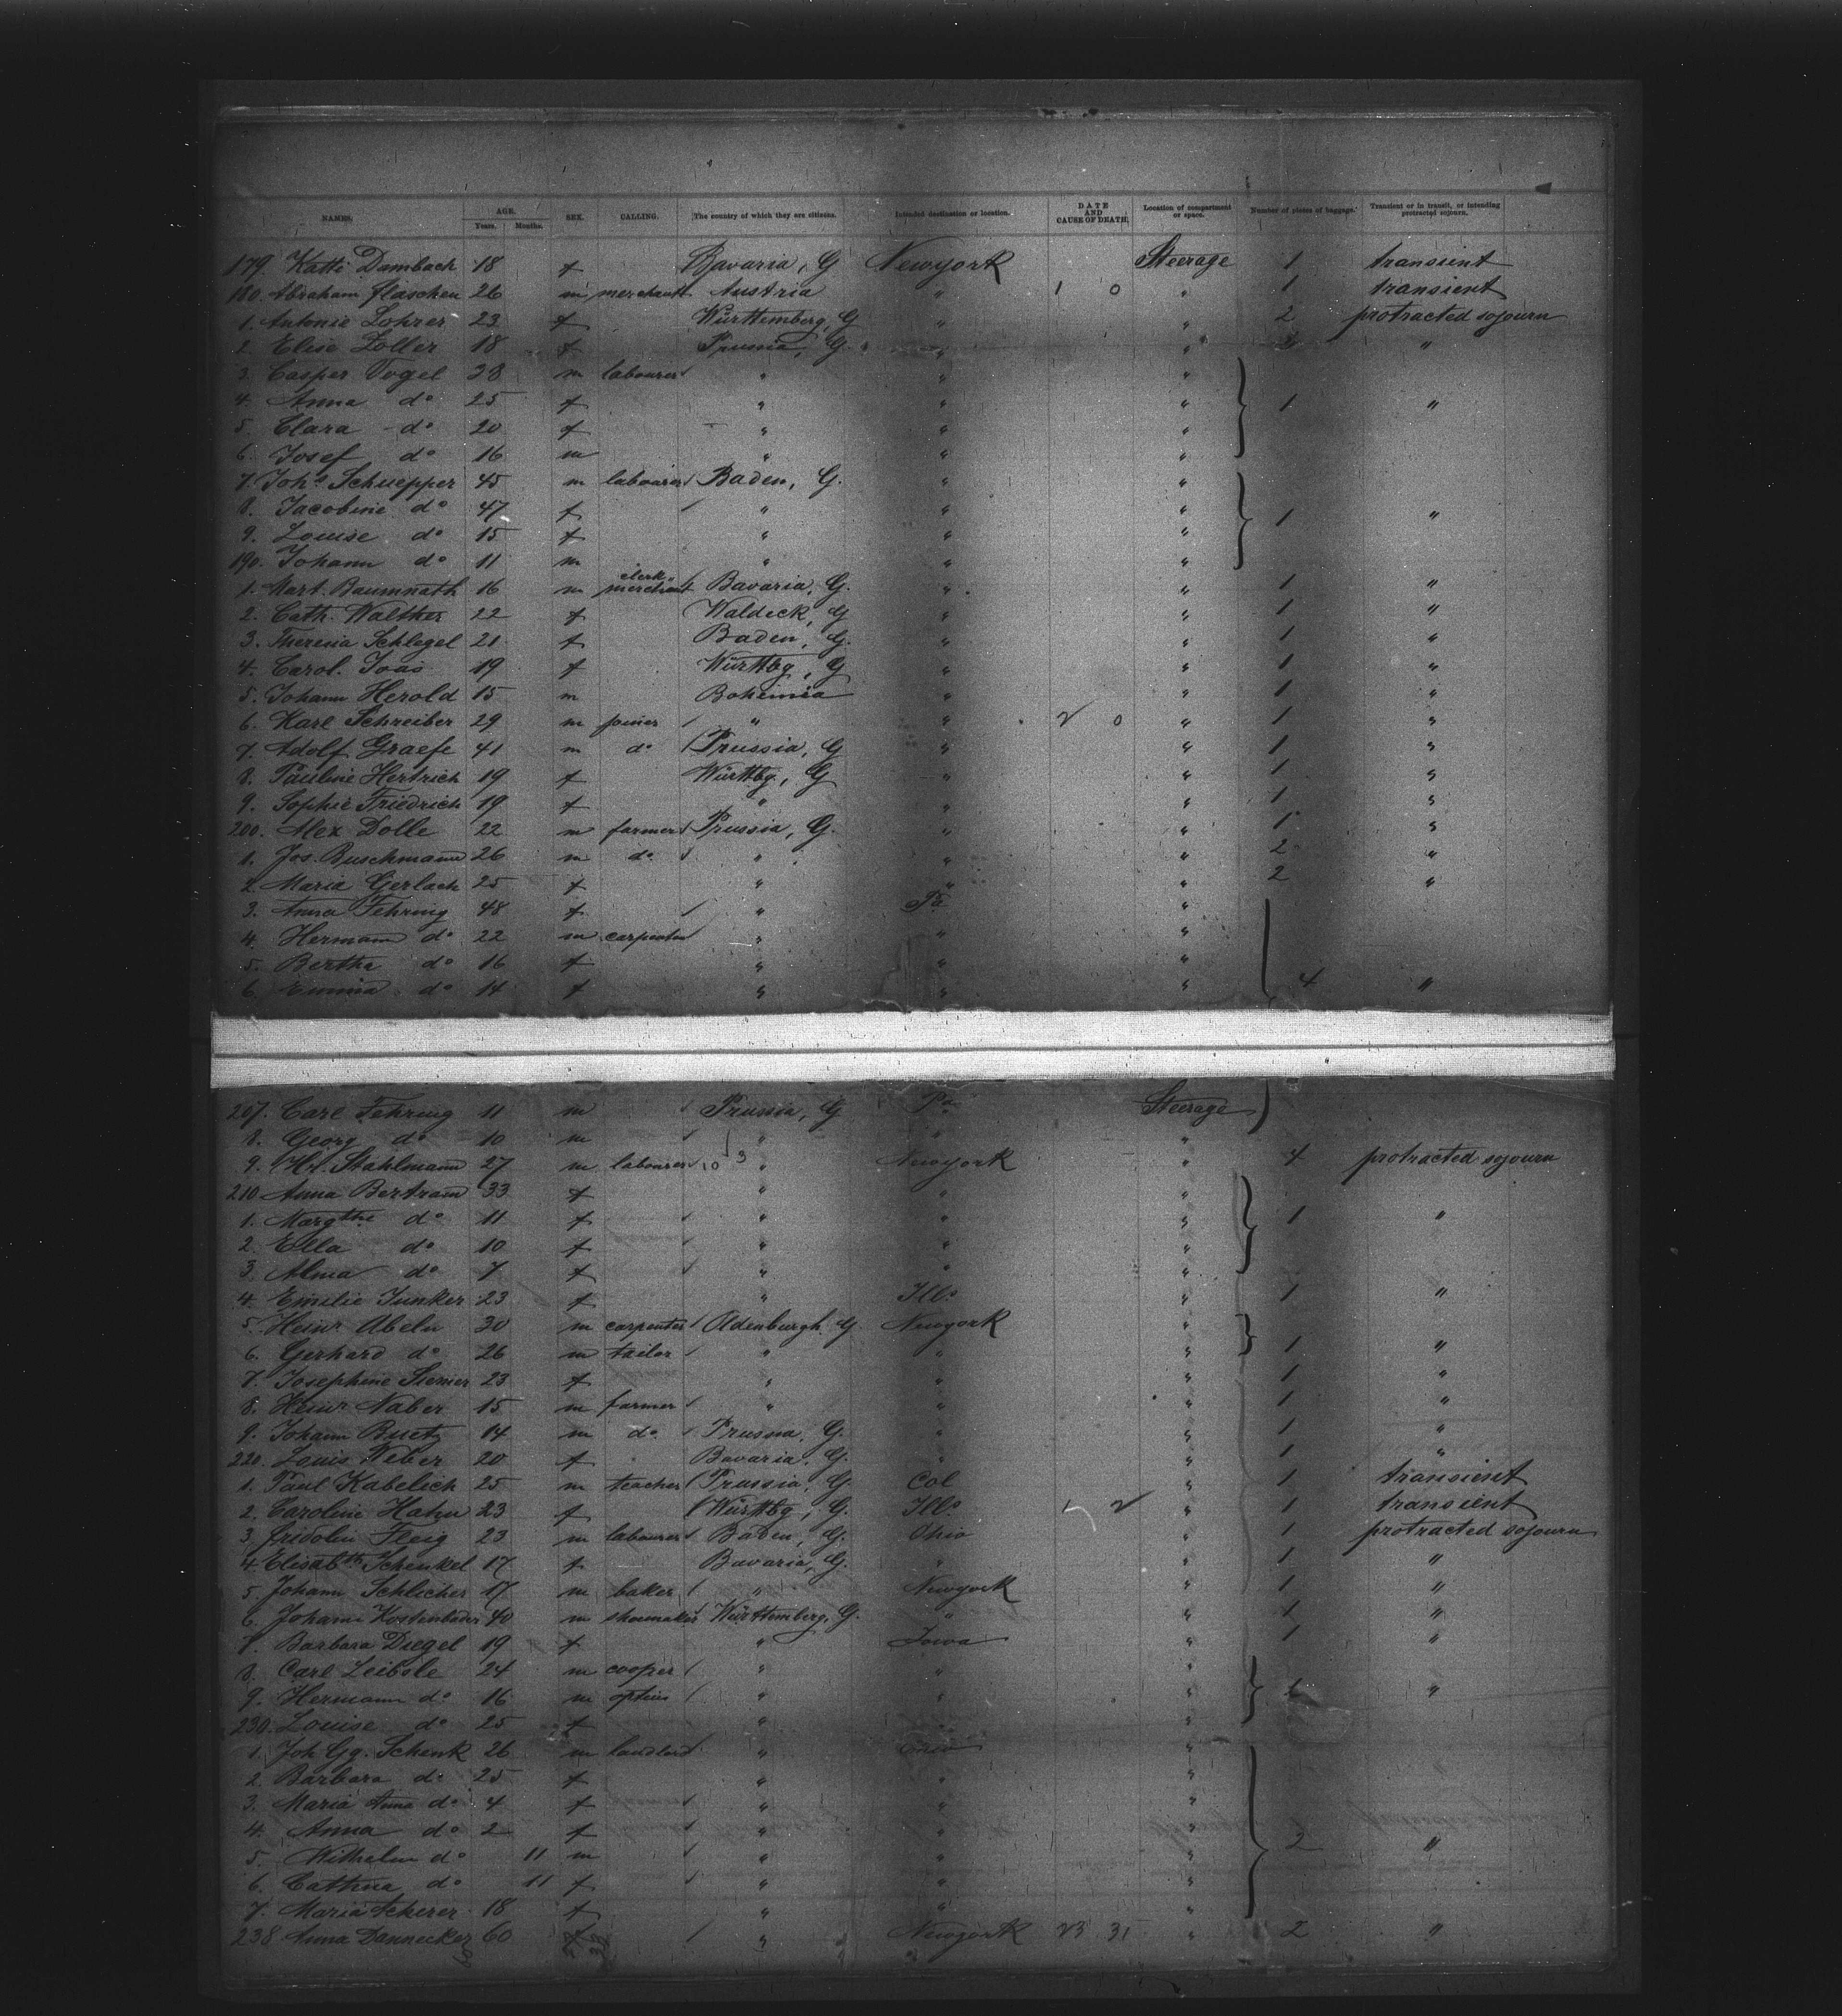 NAMES. AGE. Years. Months. SEX. CALLING. The country of which they are citizens. Intended destination or location. DATE AND CAUSE OF DEATH. Location of compartment or space. Number of pieces of baggage. Transient or in transit, or intending protracted sojourn.
179. Katti Dambach 18 f Bavaria, G Newyork Steerage 1 transient
180. Abraham Flaschen 26 m merchant Austria " 1 0 " 1 transient
1. Antonie Lohrer 23 f Württemberg, G " " 2 protracted sojourn
2. Elise Zoller 18 f Prussia, G. " " 2 "
3. Casper Vogel 28 m labourer " " "
4. Anna do 25 f " " " 1 "
5. Clara do 20 f " " "
6. Josef do 16 m " " "
7. Johs Schuepper 45 m labourer Baden, G. " "
8. Jacobine do 47 f " " " 1 "
9. Louise do 15 f " " "
190. Johann do 11 m " " "
1. Mart. Baumnath 16 m clerk merchant Bavaria, G. " " 1 "
2. Cath. Walther 22 f Waldeck, G " " 1 "
3. Theresia Schlegel 21 f Baden, G. " " 1 "
4. Carol. Joas 19 f Württbg, G " " 1 "
5. Johann Herold 15 m Bohemia " " 1 "
6. Karl Schreiber 29 m joiner " " 2 0 " 1 "
7. Adolf Graefe 41 m do Prussia, G " " 1 "
8. Pauline Hertrich 19 f Württbg, G " " 1 "
9. Sophie Friedrich 19 f " " " 1 "
200. Alex Dolle 22 m farmer Prussia, G. " " 1 "
1. Jos. Buschmann 26 m do " " " 2 "
2. Maria Gerlach 25 f " " " 2 "
3. Anna Fehring 48 f " Pa "
4. Hermann do 22 m carpenter " " "
5. Bertha do 16 f " " "
6. Emma do 14 f " " " 4 "
207. Carl Fehring 11 m Prussia, G Pa Steerage
8. Georg do 10 m " " "
9. Hr. Stahlmann 27 m labourer 10 3 " Newyork " 4 protracted sojourn
210. Anna Bertram 33 f " " "
1. Margthe do 11 f " " " 1 "
2. Ella do 10 f " " "
3. Alma do 7 f " " "
4. Emilie Junker 23 f " Ills " 1 "
5. Heinr Abeln 30 m carpenter Oldenburgh G. Newyork "
6. Gerhard do 26 m tailor " " " 1 "
7. Josephine Siemer 23 f " " " 1 "
8. Heinr Naber 15 m farmer " " " 1 "
9. Johann Buetz 14 m do Prussia, G. " " 1 "
220. Louis Weber 20 f Bavaria, G. " " 1 "
1. Paul Kabelich 25 m teacher Prussia, G. Col " 1 transient
2. Caroline Hahn 23 f Württbg, G. Ills 1 2 " 1 transient
3. Fridolin Fleig 23 m labourer Baden, G. Ohio " 1 protracted sojourn
4. Elisabth Schenkel 17 f Bavaria, G. " " 1 "
5. Johann Schlicher 17 m baker " Newyork " 1 "
6. Johann Kostenbader 40 m shoemaker Württemberg, G. " " 1 "
7. Barbara Diegel 19 f " Iowa " 1 "
8. Carl Leibsle 24 m cooper " " "
9. Hermann do 16 m " " " "
230. Louise do 25 f " " "
1. Joh Gg. Schenk 26 m landlord " Ohio "
2. Barbara do 25 f " " "
3. Maria Anna do 4 f " " "
4. Anna do 2 f " " "
5. Wilhelm do 11 m " " " 2 "
6. Cathna do 11 f " " "
7. Maria Scherer 18 f " " "
238. Anna Dannecker 60 f " Newyork 23 31 " 2 "